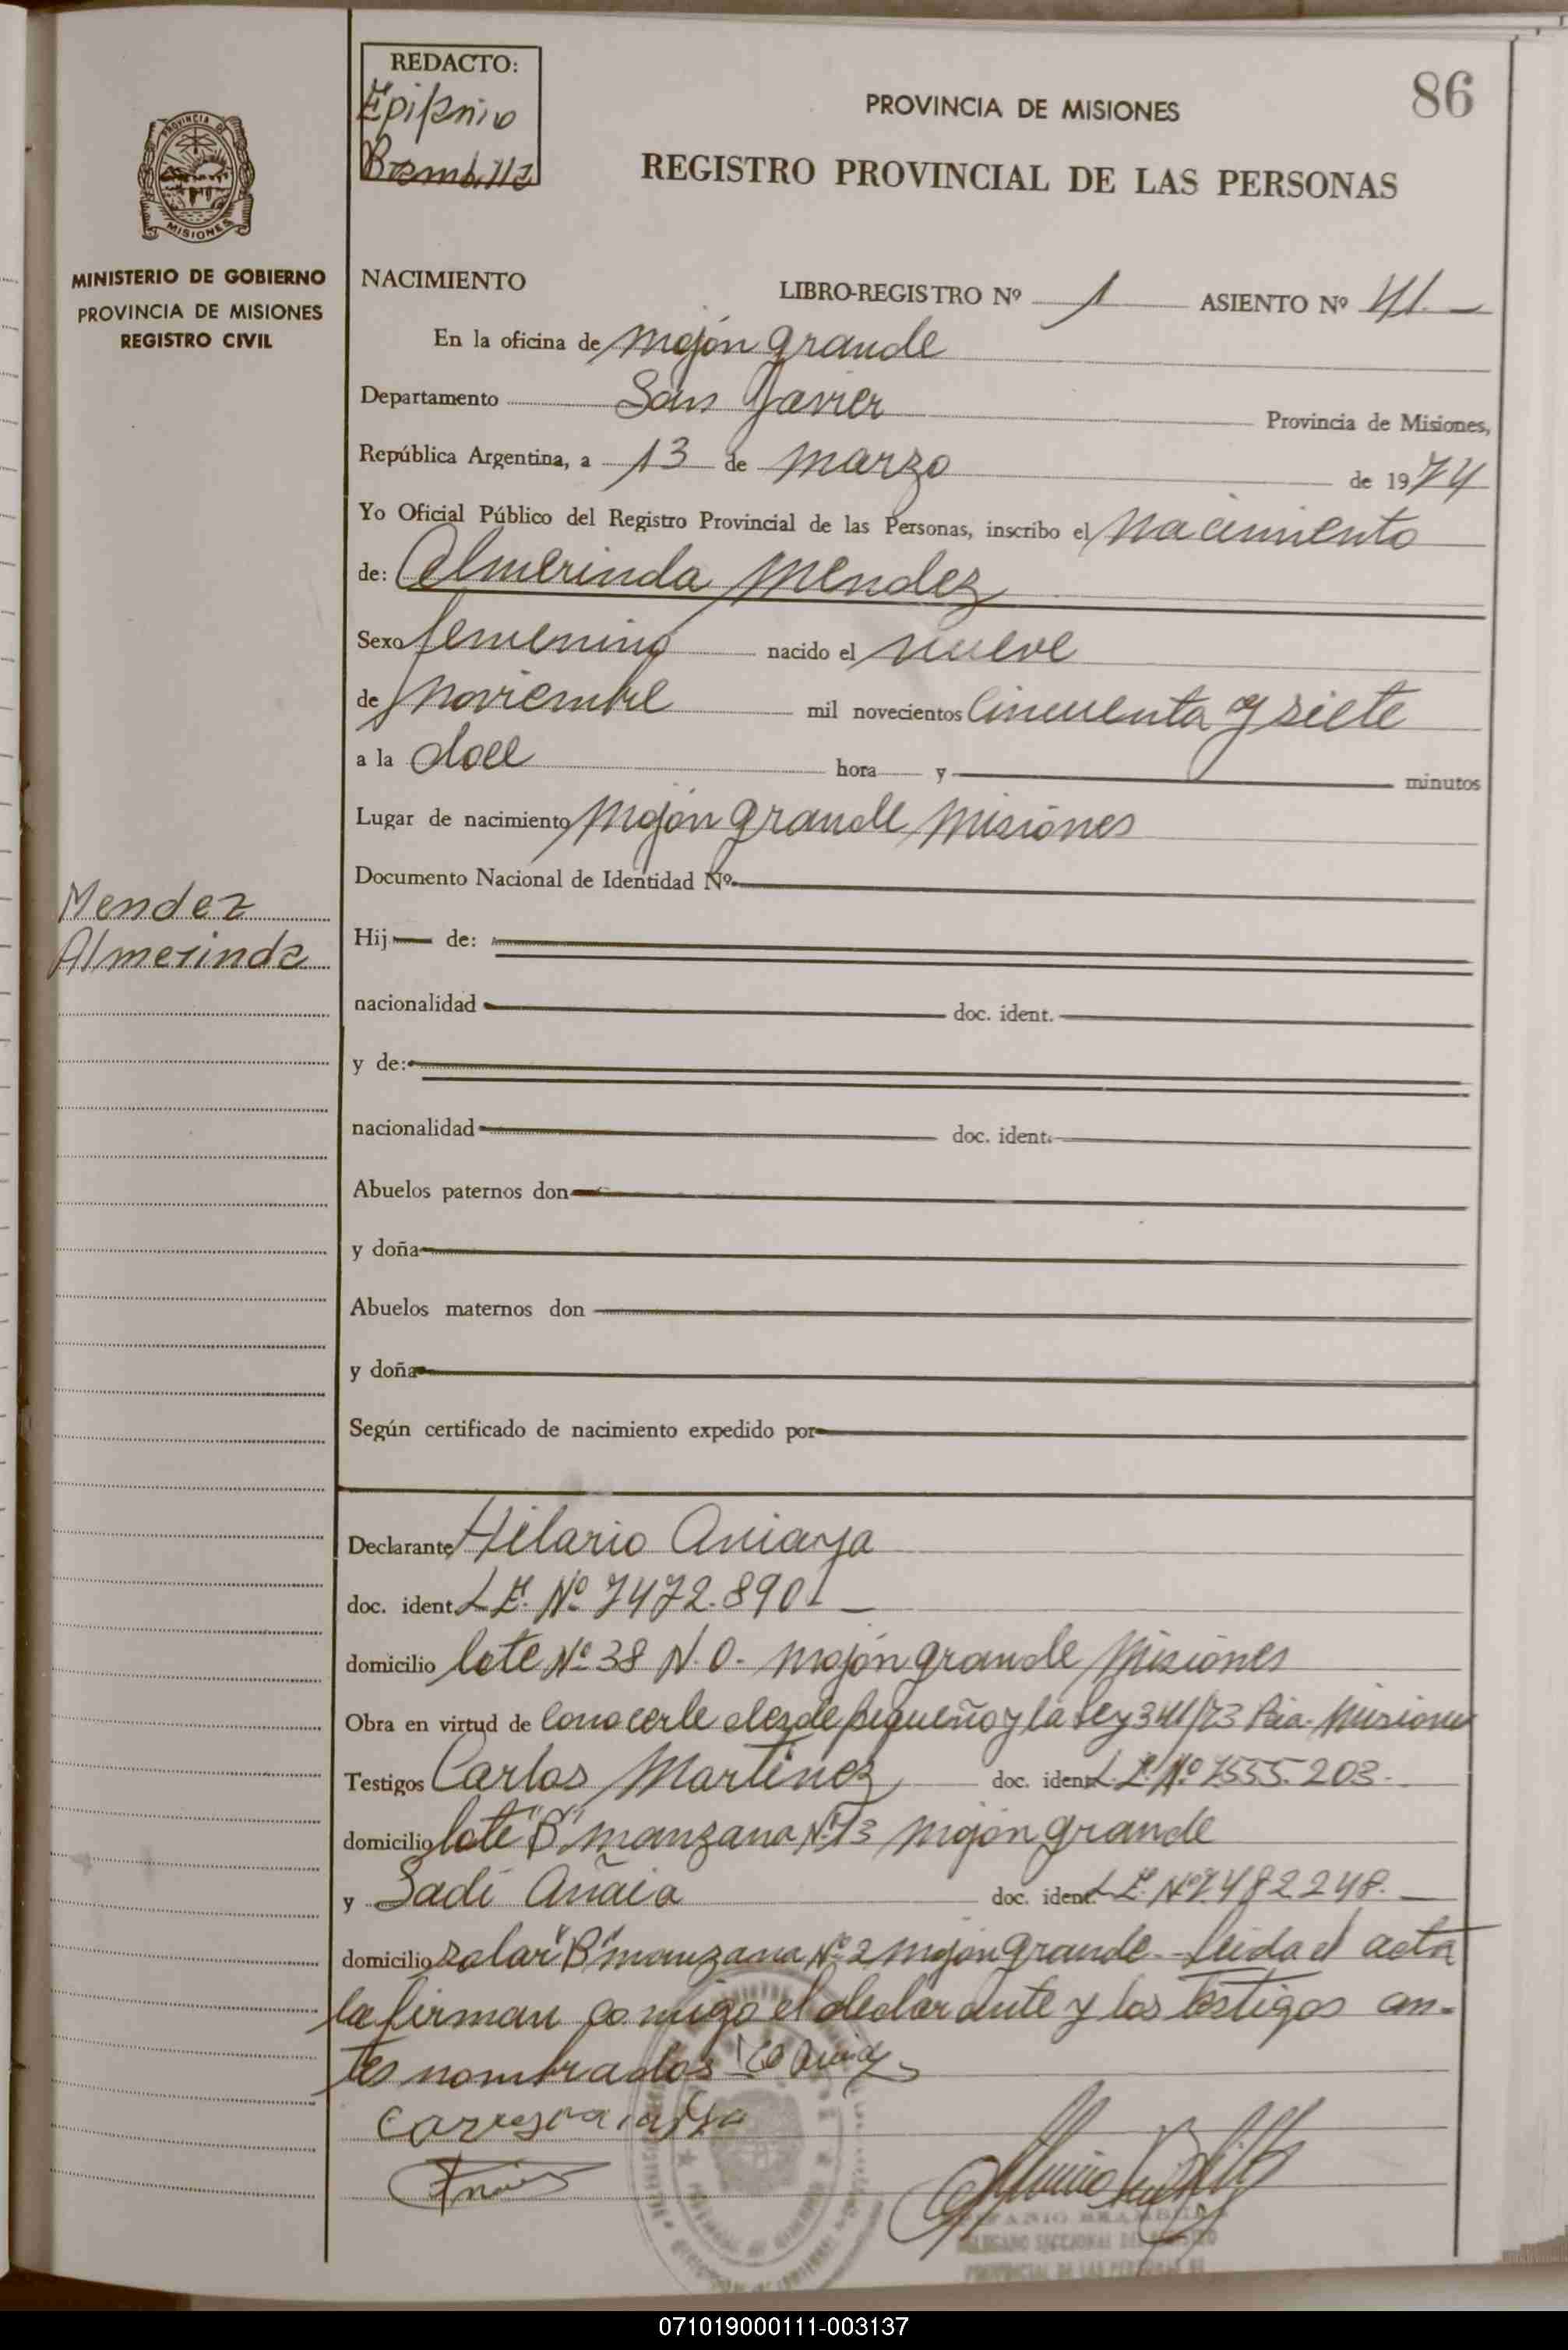 REDACTO:
Epifanio
Brambilla
86
PROVINCIA DE MISIONES
REGISTRO PROVINCIAL DE LAS PERSONAS
PROVINCIA DE
MISIONES
MINISTERIO DE GOBIERNO
PROVINCIA DE MISIONES
REGISTRO CIVIL
NACIMIENTO LIBRO-REGISTRO Nº 1 ASIENTO Nº 41.
En la oficina de Mojón grande
Departamento San Javier Provincia de Misiones,
República Argentina, a 13 de Marzo de 1974
Yo Oficial Público del Registro Provincial de las Personas, inscribo el Nacimiento
de: Almerinda Mendez
Sexo femenino nacido el nueve
de Noviembre mil novecientos Cincuenta y siete
a la doce hora y minutos
Lugar de nacimiento Mojón grande Misiones
Documento Nacional de Identidad Nº
Mendez
Almerinda
Hij de:
nacionalidad doc. ident.
y de:
nacionalidad doc. ident.
Abuelos paternos don
y doña
Abuelos maternos don
y doña
Según certificado de nacimiento expedido por
Declarante Hilario
doc. ident. L.E. Nº 7472.890
domicilio lote Nº 38 N.O. Mojón grande Misiones
Obra en virtud de conocerle desde pequeño y la Ley 341/73 Pcia. Misiones
Testigos Carlos Martinez doc. ident. L.E. Nº 7555.203.
domicilio lote "B" manzana Nº 13 Mojón grande
y Sadi Añaia doc. ident. L.E. Nº 7.482248.
domicilio solar "B" manzana Nº 2 Mojón grande. Leida el acta
la firman comigo el declarante y los testigos an-
tes nombrados
DELEGADO SECCIONAL DEL REGISTRO
PROVINCIAL DE LAS PERSONAS
071019000111-003137